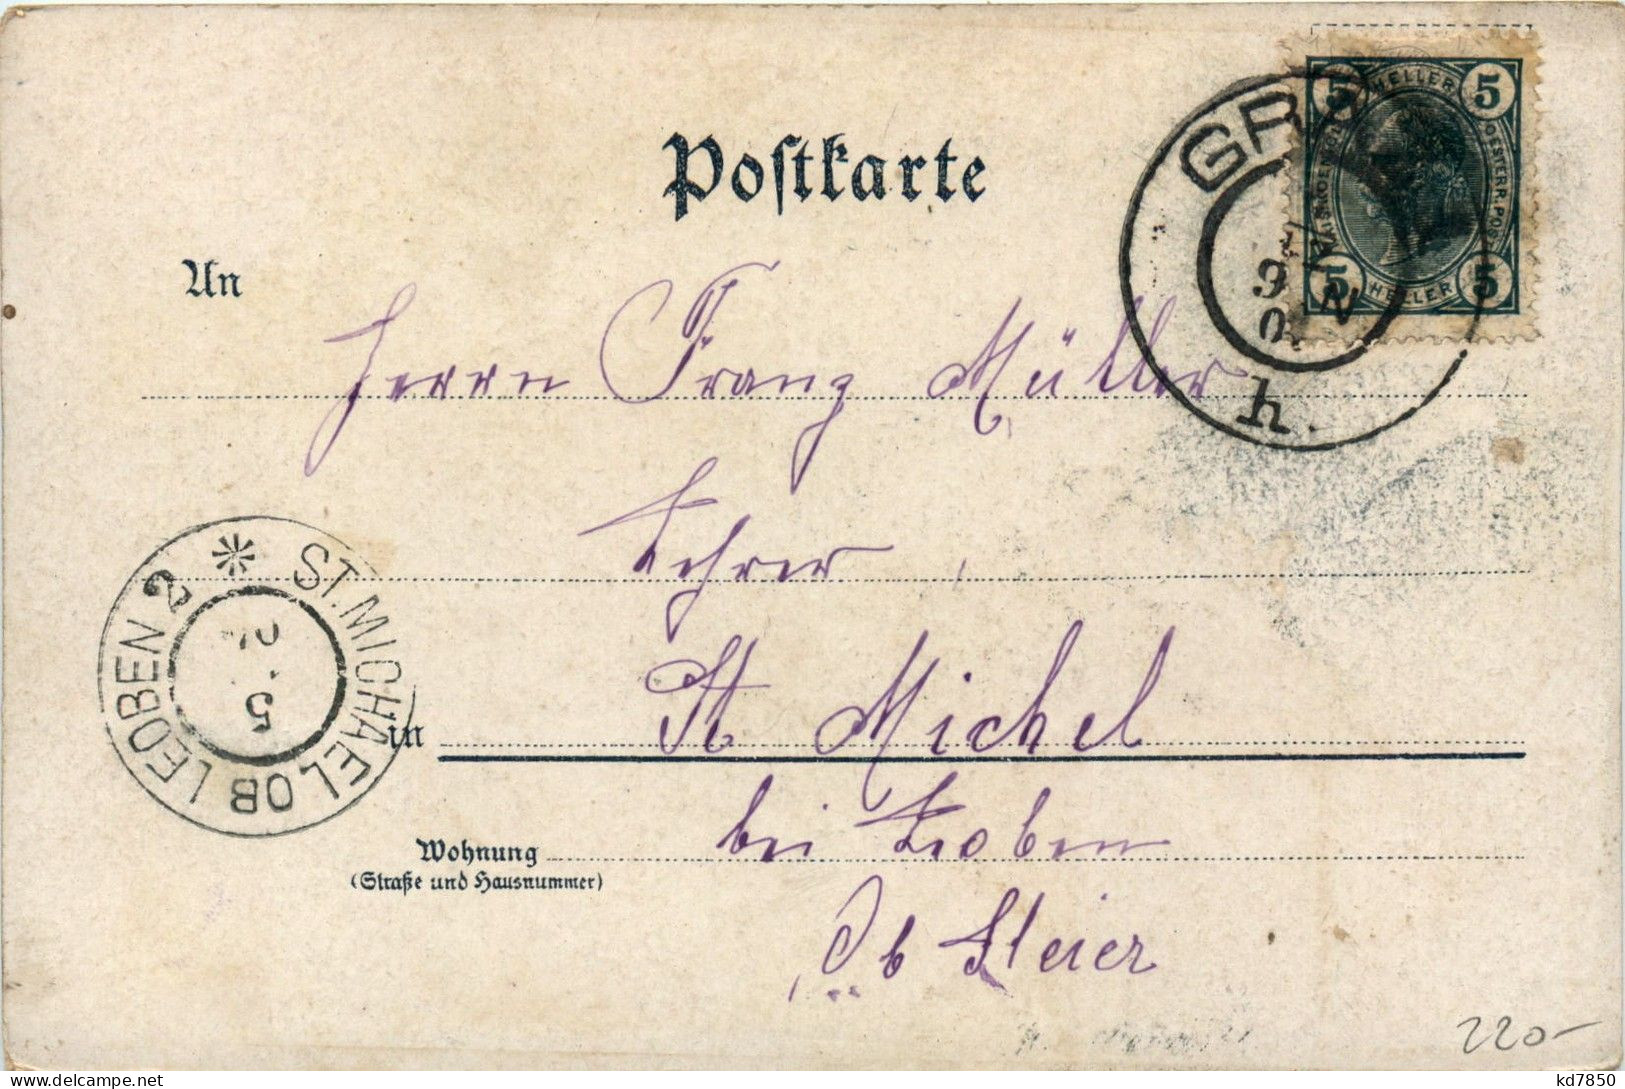 Postkarte
5 HELLER 5
OESTERR. POST
5 HELLER 5
GRAZ
9
N
h.
An
Herrn Franz Müller
Lehrer
ST. MICHAEL OB LEOBEN 2
5
in St Michel
bei Leoben
Wohnung
(Straße und Hausnummer)
Ob Steier
220-
kd7850